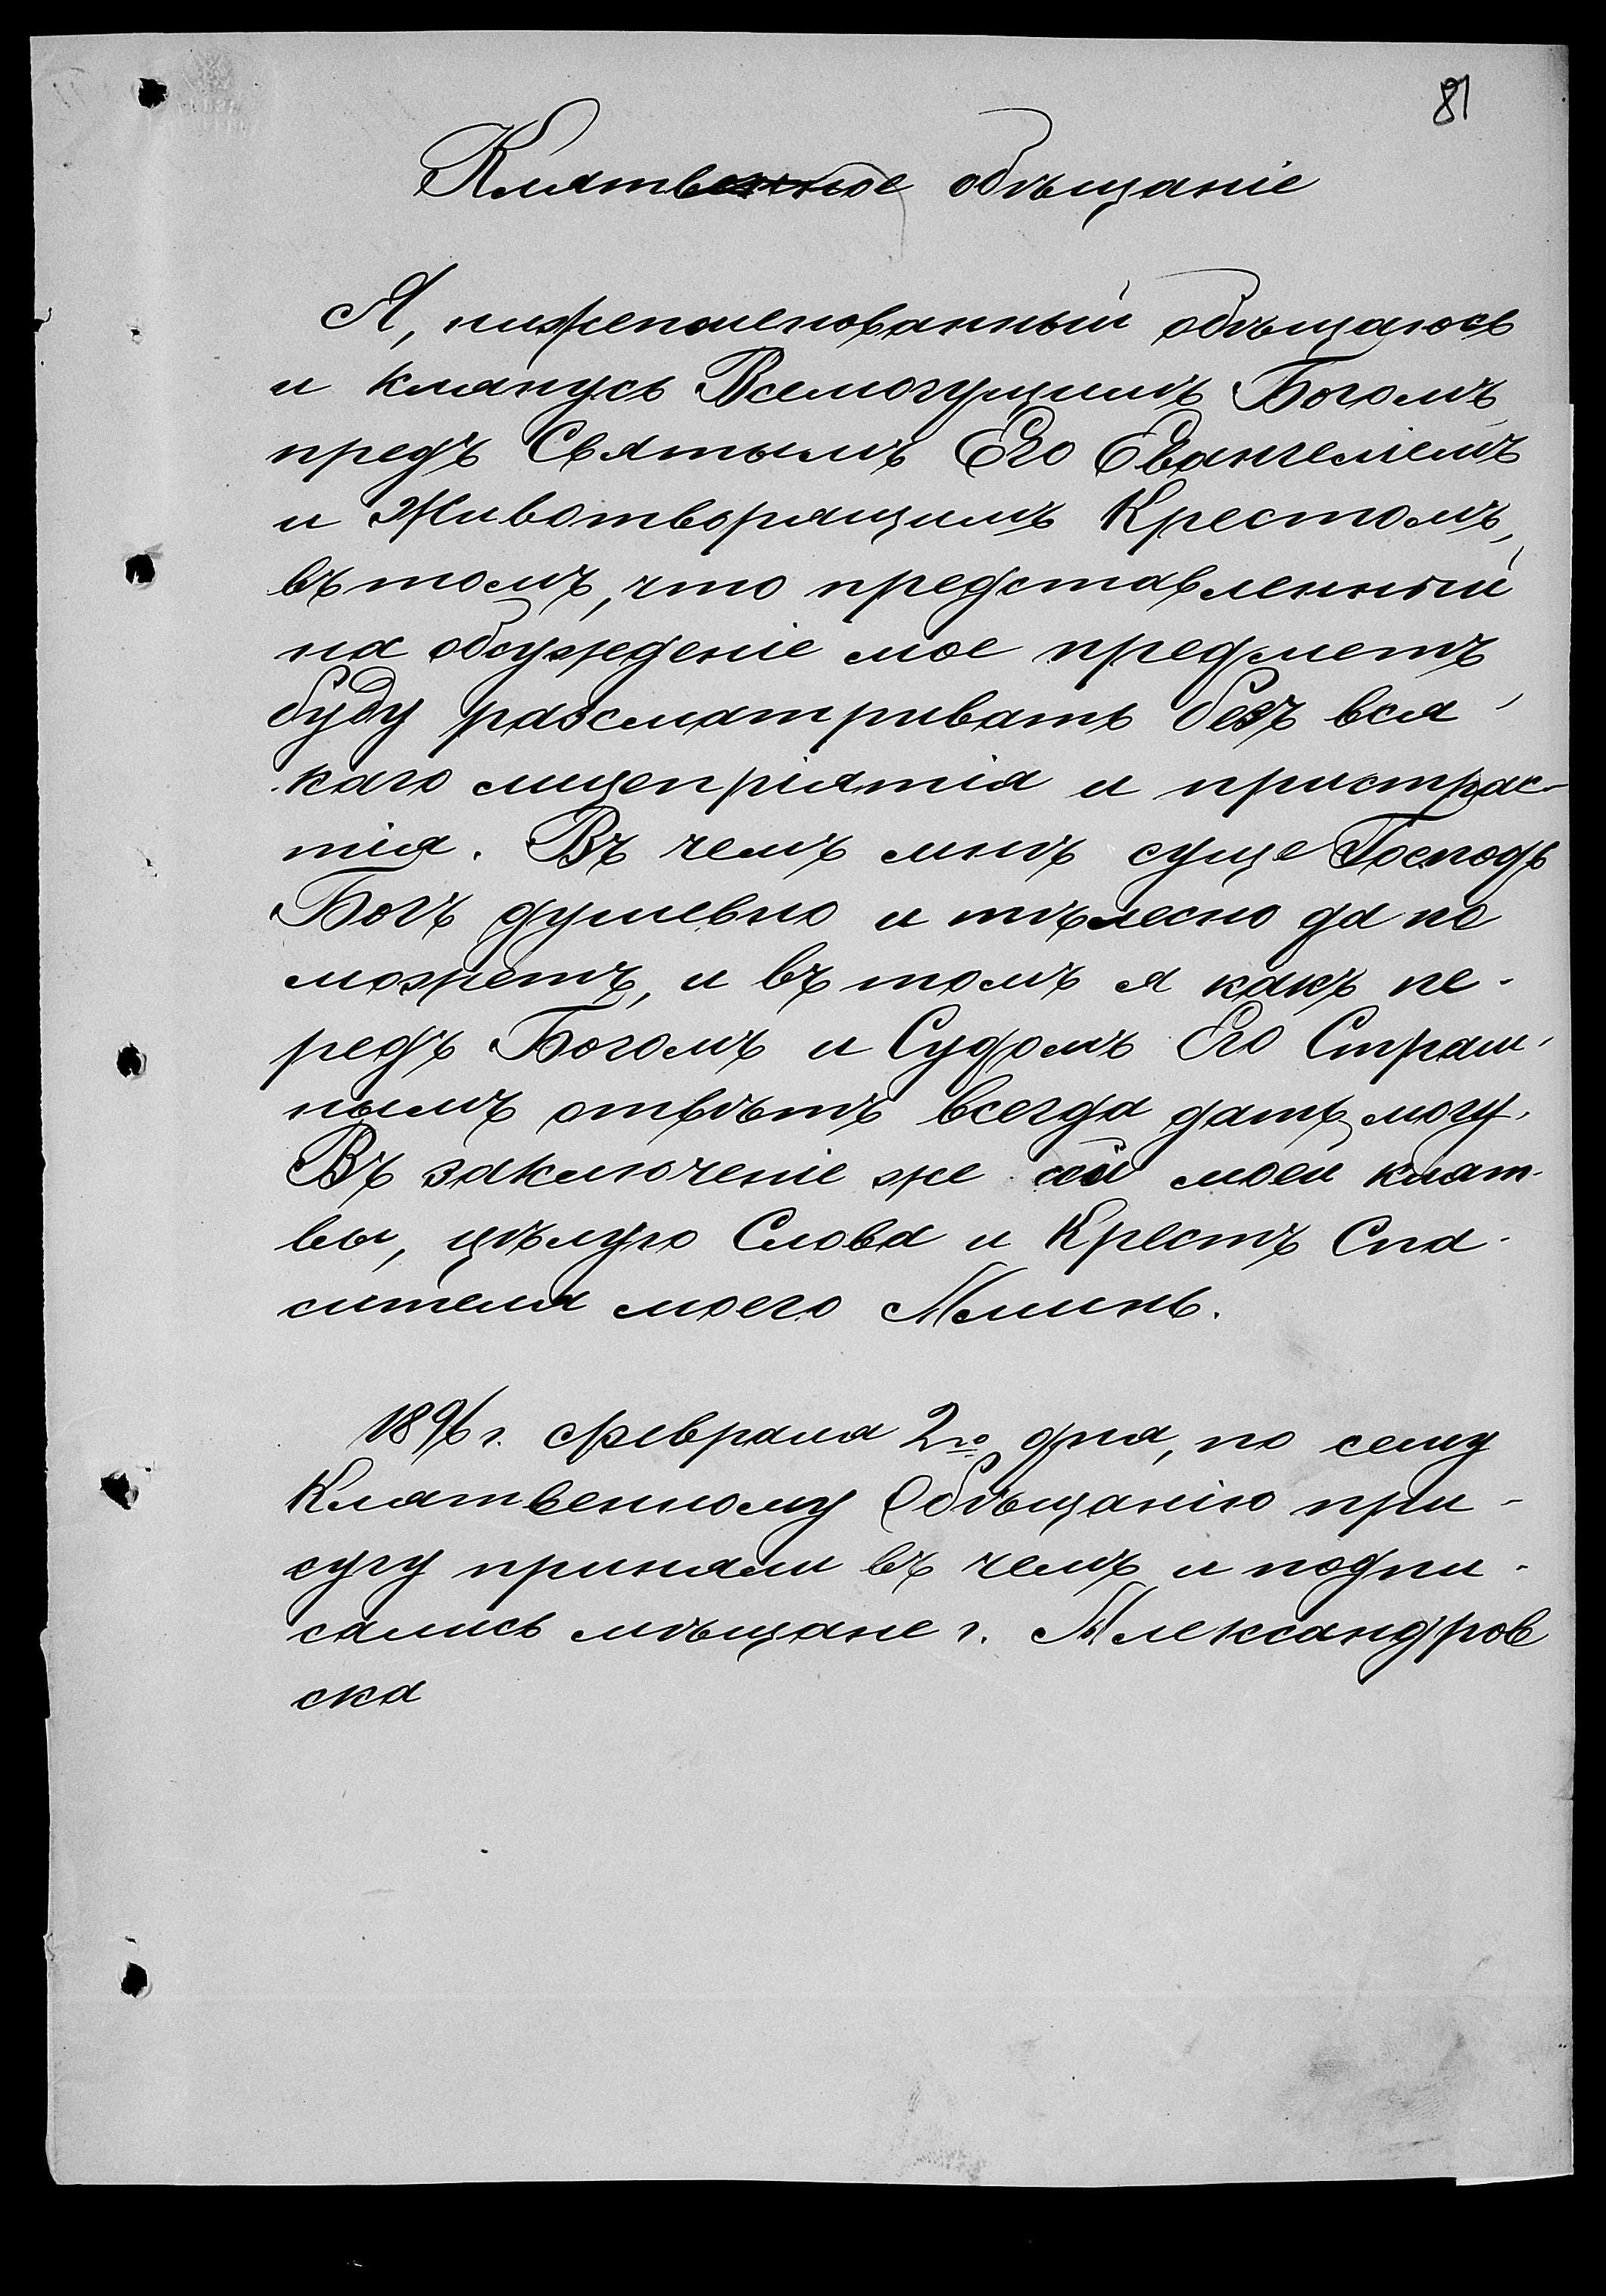 81
Клятвенное обѣщаніе
Я, нижепоименованный обѣщаюсь
и клянусь Всемогущимъ Богомъ
предъ Святымъ Его Евангеліемъ
и Животворящимъ Крестомъ,
въ томъ, что представленный
на обсужденіе мое предметъ
буду разсматривать безъ вся-
каго лицепріятія и пристрас-
тія. Въ чемъ мнѣ суще Господь
Богъ душевно и тѣлесно да по
можетъ, и въ томъ я какъ пе-
редъ Богомъ и Судомъ Его Страш-
нымъ отвѣтъ всегда дать могу.
Въ заключеніе же сей моей клят-
вы, цѣлую Слова и Крестъ Спа-
сителя моего Аминь.
1896 г. Февраля 2го дня, по сему
Клятвенному Обѣщанію при-
сягу приняли въ чемъ и подпи-
сались мѣщане г. Александров
ска